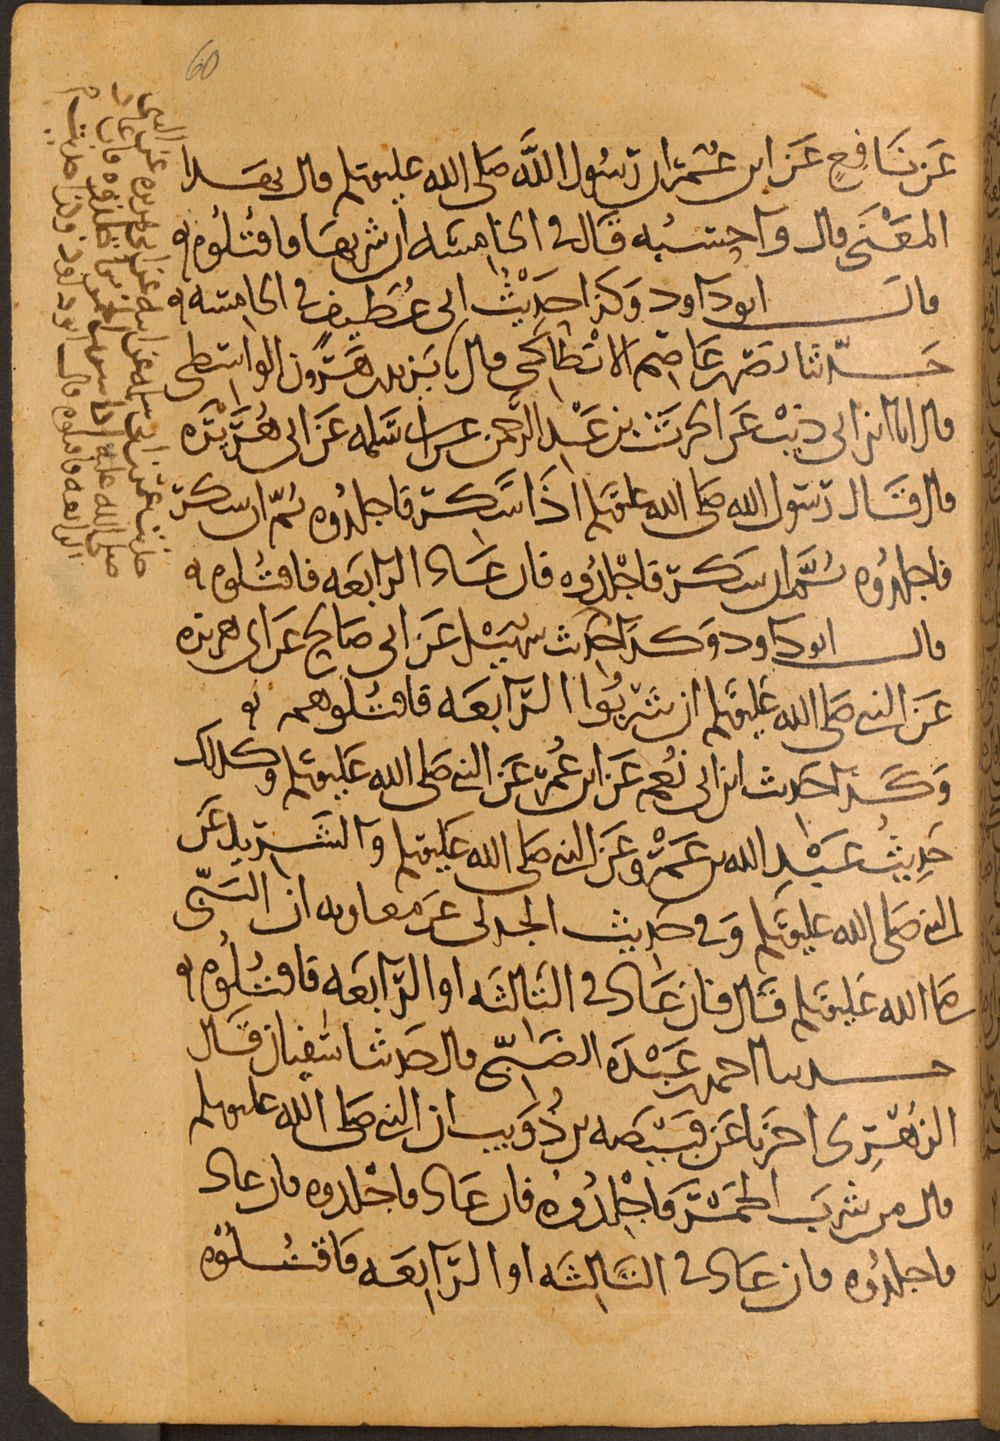 60
عن نافع عن ابن عمر ان رسول الله صلى الله عليه وسلم قال بهذا
المعنى قال واحسبه قال في الخامسة ان شربها فاقتلوه
قال ابو داود وكذا حديث ابي غطيف في الخامسة
حدثنا نصر بن عاصم الانطاكي قال يزيد بن هرون الواسطي
قال انا ابن ابي ذيب عن الحرث بن عبد الرحمن عن ابي سلمه عن ابي هريره
قال قال رسول الله صلى الله عليه وسلم اذا سكر فاجلدوه ثم ان سكر
فاجلدوه ثم ان سكر فاجلدوه فان عاد الرابعه فاقتلوه
قال ابو داود وكذا حديث سهيل عن ابي صالح عن ابي هريره
عن النبي صلى الله عليه وسلم ان شربوا الرابعه فاقتلوهم
وكذا حديث ابن ابي نعم عن ابن عمر عن النبي صلى الله عليه وسلم وكذلك
حديث عبد الله بن عمرو عن النبي صلى الله عليه وسلم والشريد عن
النبي صلى الله عليه وسلم وفي حديث الجدلي عن معاويه ان النبي
صلى الله عليه وسلم قال فان عاد في الثالثه او الرابعه فاقتلوه
حدثنا احمد بن عبدة الضبي قال حدثنا سفيان قال
الزهري اخبرنا عن قبيصه بن ذؤيب ان النبي صلى الله عليه وسلم
قال من شرب الخمر فاجلدوه فان عاد فاجلدوه فان عاد
فاجلدوه فان عاد في الثالثه او الرابعه فاقتلوه
حديث عمر بن ابي سلمه عن ابيه عن ابي هريره عن النبي
صلى الله عليه وسلم اذا شرب الخمر فاجلدوه فان عاد
الرابعه فاقتلوه قال ابو داود وكذا حديث